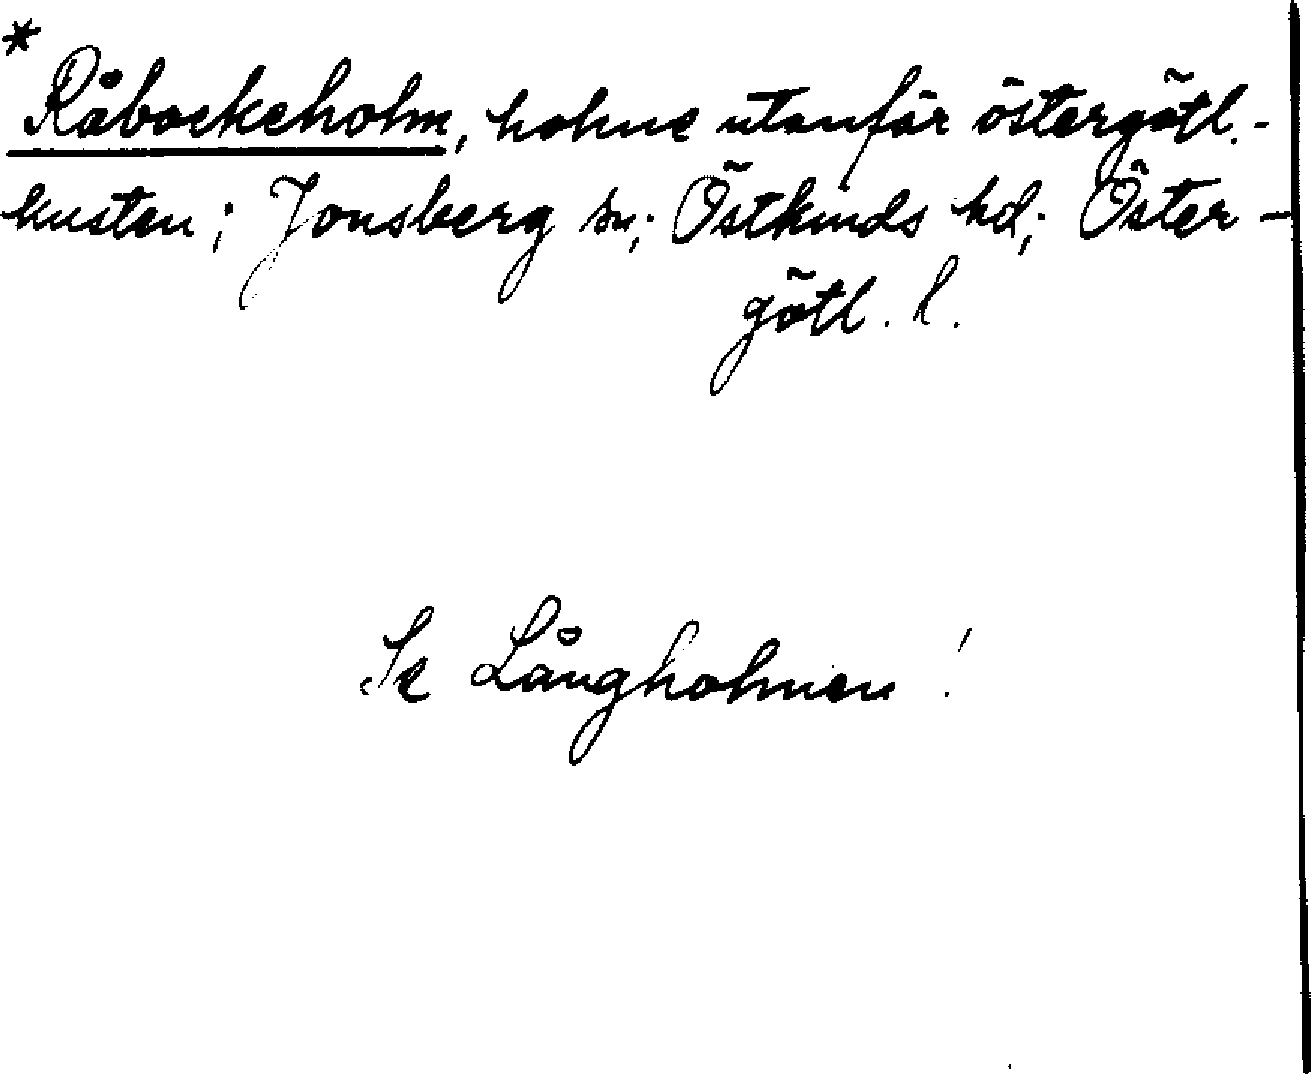 *
Råbockeholm, holme utanför östergötl.-
kusten; Jonsberg sn; Östkinds hd; Öster-
götl. l.
Se Långholmen!